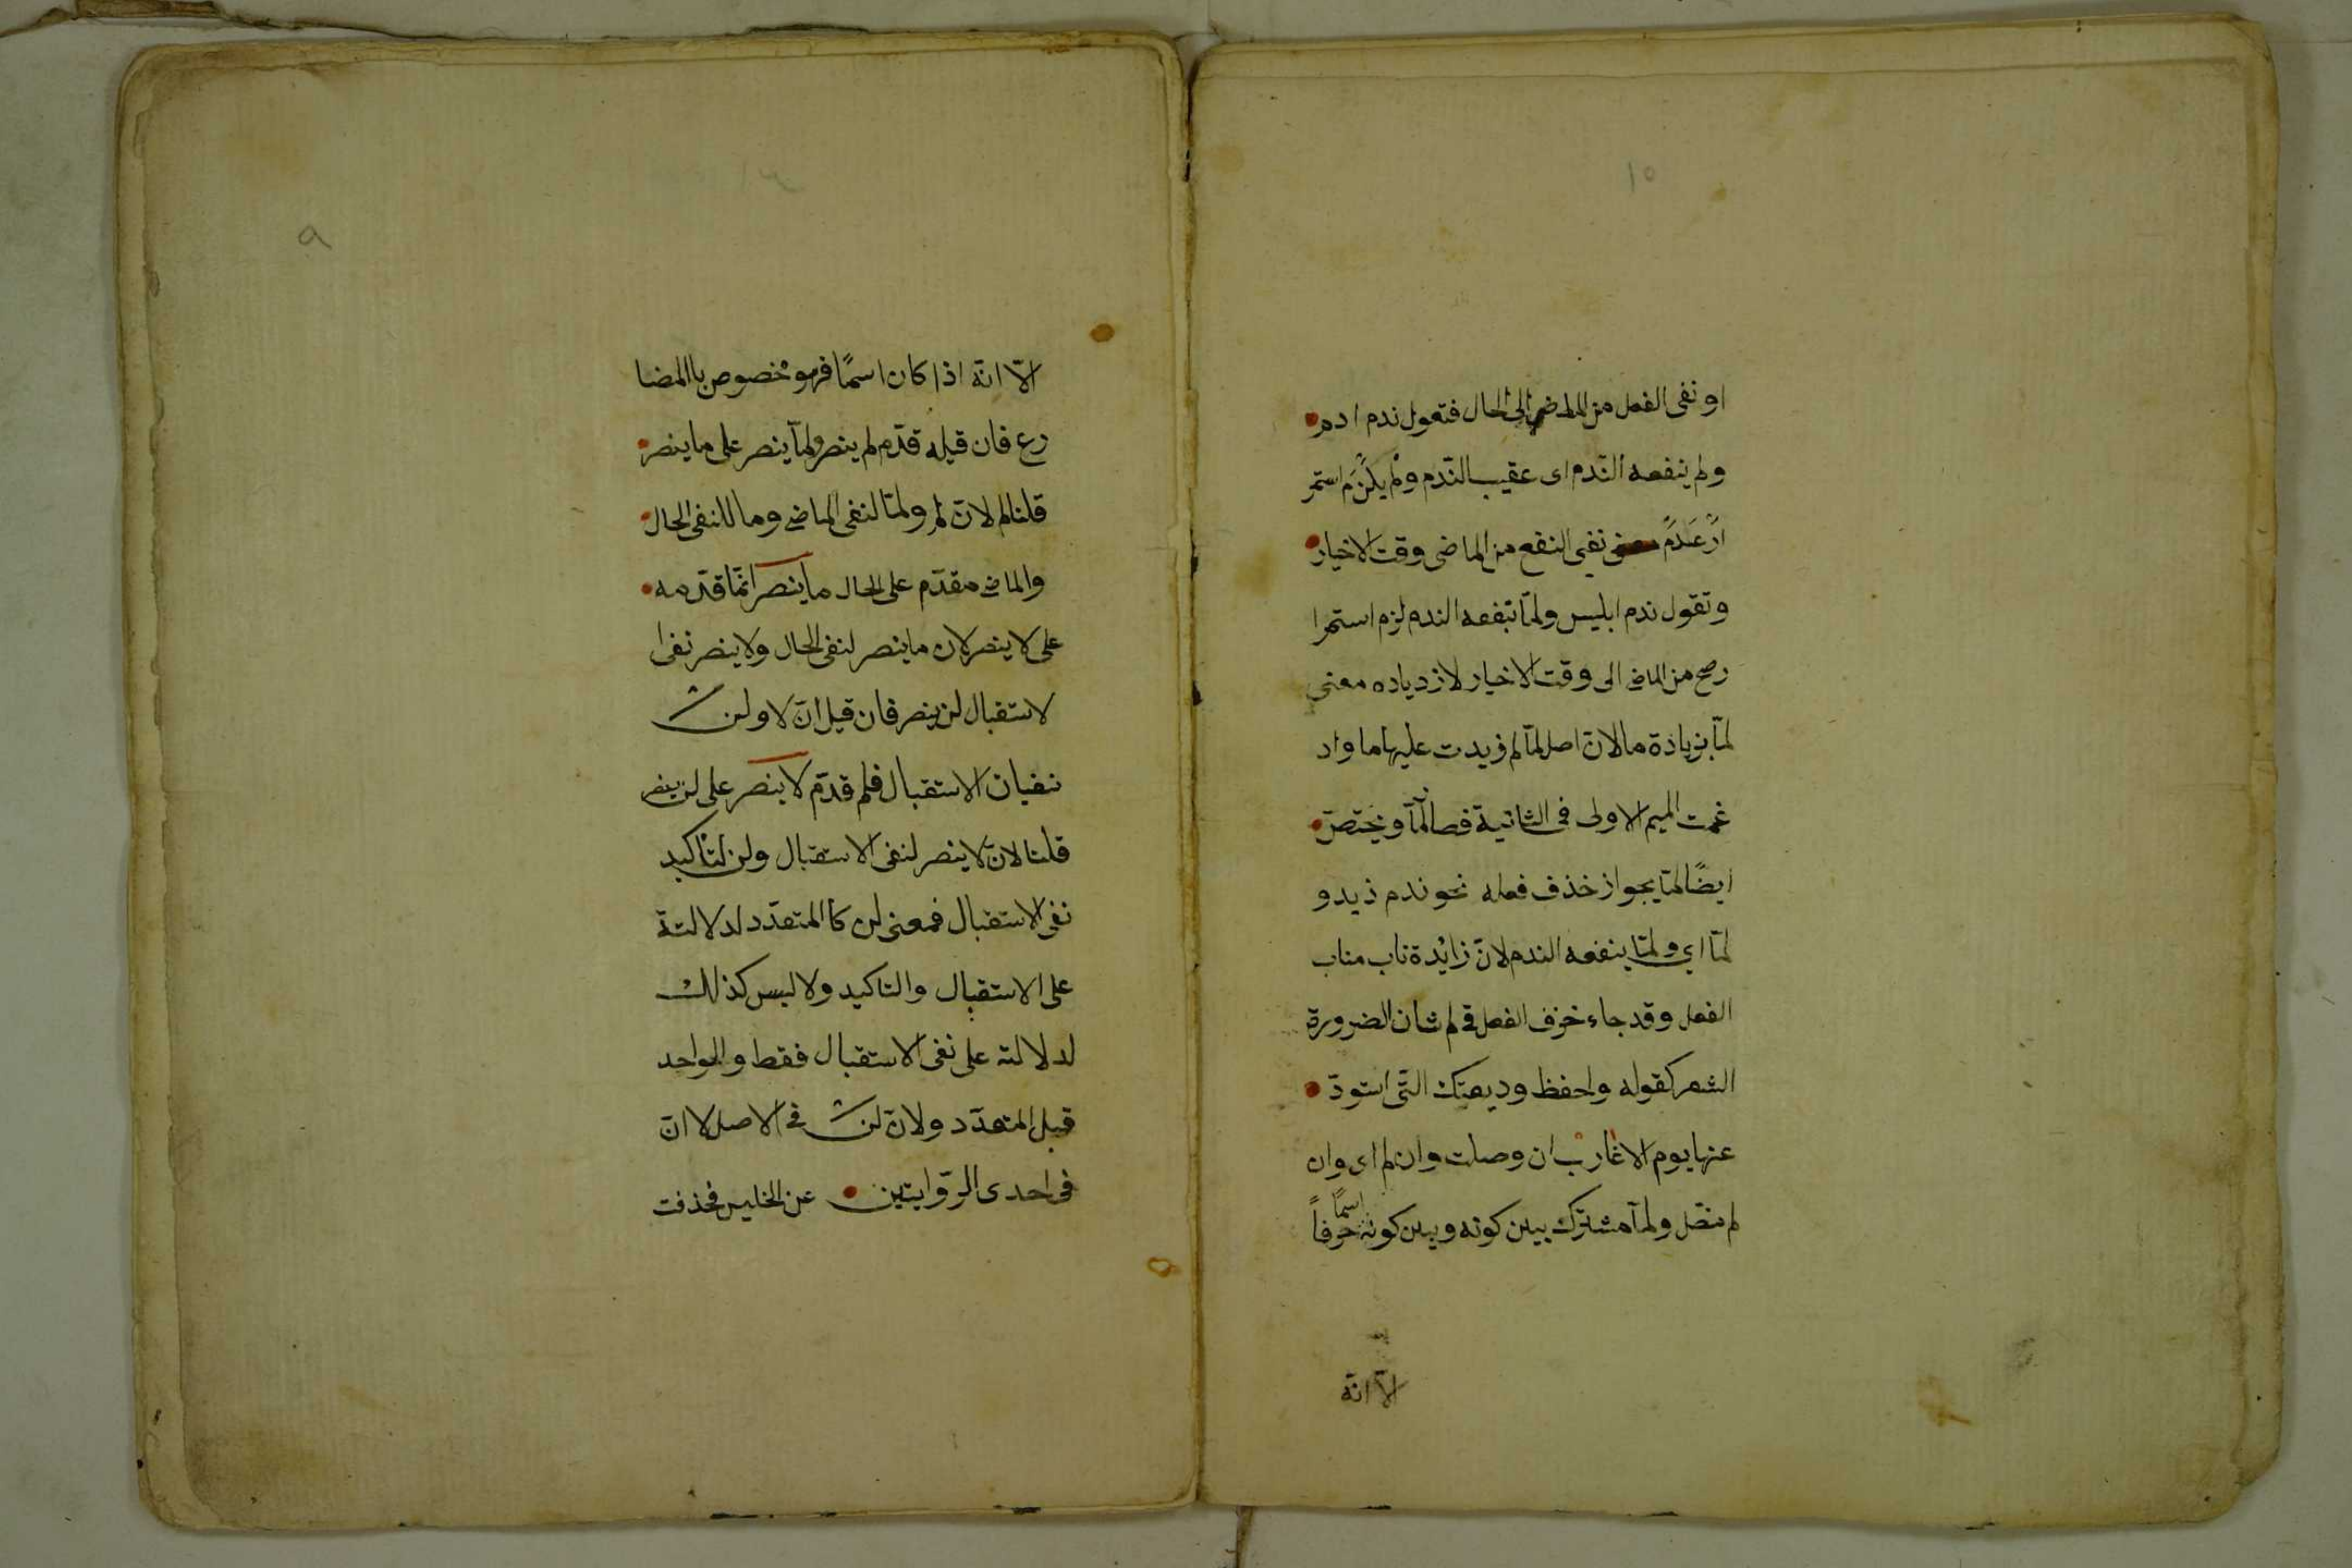 ١٥
او نفى الفعل من الماضى الى الحال فتعول ندم ادم
ولم ينفعه النّدم اى عقيب النّدم ولم يكن استمر
نفى النفع من الماضى وقت الاخيار
وتقول ندم ابليس ولمّا تنفعه الندم لزم استمرا
رصح من الماضى الى وقت الاخيار لازدياده معنى
لمّا بزيادة ما لانّ اصل لمّا لم زيدت عليها ما واد
غمت الميم الاولى فى الثانية فصا لمّا ويختصّ
ايضًا لمّا بجواز خذف فعله نحو ندم زيد و
لمّا اي ولمّا ينفعه الندم لانّ زائدة ناب مناب
الفعل وقد جاء خزف الفعل فى لم شان الضرورة
الشعر كقوله واحفظ وديعتك التّى استودّ
عنها يوم الاغارب ان وصلت وان لم اى وان
لم تصّل ولمّا مشترك بين كونه وبين كونه اسمًا حرفاً
الاّ انّه
٩
الاّ انّه اذا كان اسمًا فهو مخصوص باالمضا
رع فان قيل لم قدّم لم ينصر ولمّا ينصر على ما ينصر
قلنا لم لانّ لم ولمّا لنفى الماضى وما للنفى الحال
والماضى مقدّم على الحال ما ينصر انمّا قدّمه
على لا ينصر لان ما ينصر لنفى الحال ولا ينصر نفى ا
لاستقبال لن ينصر فان قيل انّ لا ولن
نفيان الاستقبال فلم قدّم لا ينصر على لن ينصر
قلنا لانّ لا ينصر لنفى الاستقبال ولن لتاكيد
نفى الاستقبال فمعنى لن كاالمتعدّد لدلالتة
على الاستقبال والتاكيد ولا ليس كذلك
لدلالته على نفى الاستقبال فقط والواحد
قبل المتعدّد ولانّ لن فى الاصل لا انّ
فى احدى الرّوايتين عن الخليس فحذفت